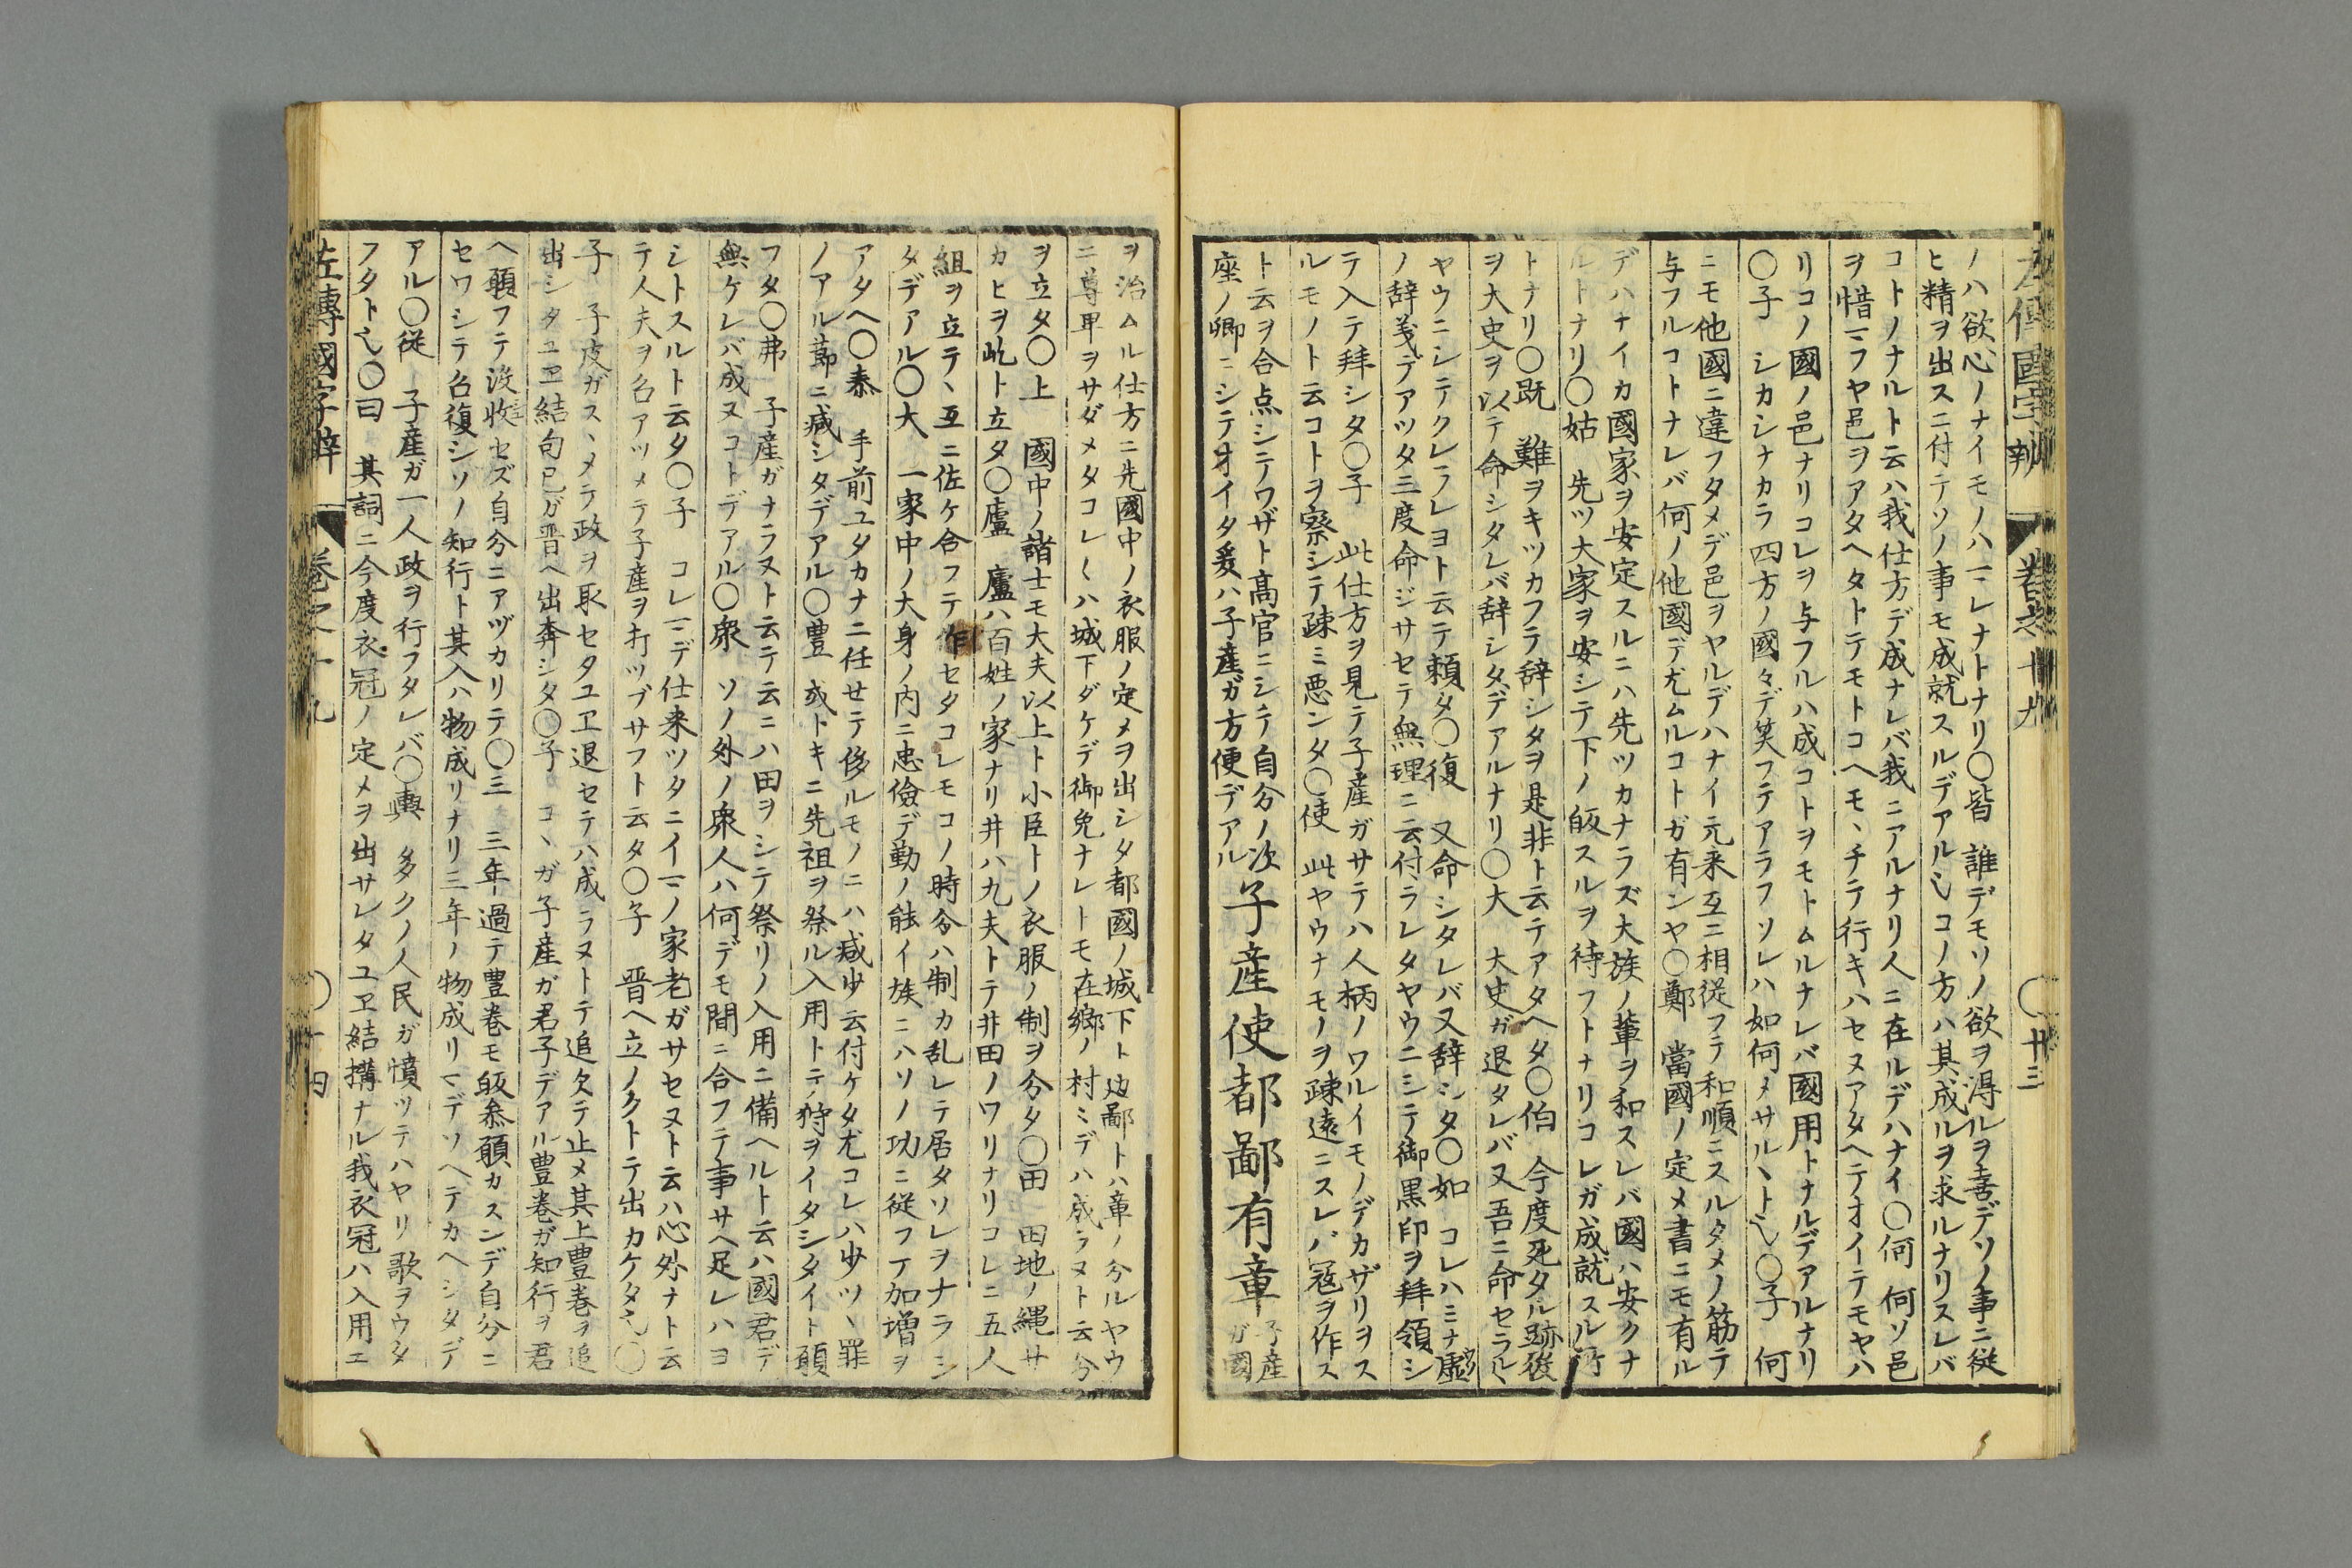 左傳國字辨 巻之十九 〇十三
ノハ欲心ノナイモノハマレナトナリ〇皆 誰デモソノ欲ヲ得ルヲ善デソノ事ニ従
ヒ精ヲ出スニ付テソノ事モ成就スルデアル乀コノ方ハ其成ルヲ求ルナリスレバ
コトノナルト云ハ我仕方デ成ナレバ我ニアルナリ人ニ在ルデハナイ〇何 何ソ邑
ヲ惜マフヤ邑ヲアタヘタトテモトコヘモヽチテ行キハセヌアタヘテオイテモヤハ
リコノ國ノ邑ナリコレヲ与フルハ成コトヲモトムルナレバ國用トナルデアルナリ
〇子 シカシナカラ四方ノ國々デ笑フテアラフソレハ如何メサルヽト乀〇子 何
ニモ他國ニ違フタメデ邑ヲヤルデハナイ元来互ニ相従フテ和順ニスルタメノ筋テ
与フルコトナレバ何ノ他國デ尤ムルコトガ有ンヤ〇鄭 當國ノ定メ書ニモ有ル
デハナイカ國家ヲ安定スルニハ先ツカナラズ大族ノ輩ヲ和スレバ國ハ安クナ
ルトナリ〇姑 先ツ大家ヲ安シテ下ノ皈スルヲ待フトナリコレガ成就スル所
トナリ〇既 難ヲキツカフテ辞シタヲ是非ト云テアタヘタ〇伯 今度死タル跡後
ヲ大史ヲ以テ命シタレバ辞シタデアルナリ〇大 大史ガ退タレバ又吾ニ命セラルヽ
ヤウニシテクレラレヨト云テ頼タ〇復 又命シタレバ又辞シタ〇如 コレハミナ虚
ノ辞義デアツタ三度命ジサセテ無理ニ云付ラレタヤウニシテ御黒印ヲ拜領シ
テ入テ拜シタ〇子 此仕方ヲ見テ子産ガサテハ人柄ノワルイモノデカザリヲス
ルモノト云コトヲ察シテ疎ミ悪ンタ〇使 此ヤウナモノヲ疎遠ニスレバ冦ヲ作ス
ト云ヲ合点シテワザト髙官ニシテ自分ノ次
座ノ卿ニシテオイタ爰ハ子産ガ方便デアル
子産使都鄙有章
子産
ガ國
ヲ治ムル仕方ニ先國中ノ衣服ノ定メヲ出シタ都國ノ城下ト边鄙トハ章ノ分ルヤウ
ニ尊卑ヲサダメタコレ〱ハ城下ダケデ御免ナレトモ在郷ノ村ミデハ成ラヌト云分
ヲ立タ〇上 國中ノ諸士モ大夫以上ト小臣トノ衣服ノ制ヲ分タ〇田 田地ノ縄サ
カヒヲ屹ト立タ〇廬 廬ハ百姓ノ家ナリ井ハ九夫トテ井田ノワリナリコレニ五人
組ヲ立テヽ互ニ佐ケ合フテ作セタコレモコノ時分ハ制カ乱レテ居タソレヲナラシ
タデアル〇大 一家中ノ大身ノ内ニ忠儉デ勤ノ能イ族ニハソノ功ニ従フテ加増ヲ
アタヘ〇泰 手前ユタカナニ任せテ侈ルモノニハ减少云付ケタ尤コレハ少ツヽ罪
ノアル莭ニ减シタデアル〇豊 或トキニ先祖ヲ祭ル入用トテ狩ヲイタシタイト願
フタ〇弗 子産ガナラヌト云テ云ニハ田ヲシテ祭リノ入用ニ備ヘルト云ハ國君デ
無ケレバ成ヌコトデアル〇衆 ソノ外ノ衆人ハ何デモ間ニ合フテ事サヘ足レハヨ
シトスルト云タ〇子 コレマデ仕来ツタニイマノ家老ガサセヌト云ハ心外ナト云
テ人夫ヲ召アツメテ子産ヲ打ツブサフト云タ〇子 晋ヘ立ノクトテ出カケタ乀〇
子 子皮ガスヽメテ政ヲ取セタユヱ退セテハ成ラヌトテ追欠テ止メ其上豊巻ヲ追
出シタユヱ結句已ガ晋ヘ出奔シタ〇子 コヽガ子産ガ君子デアル豊巻ガ知行ヲ君
ヘ願フテ没收セズ自分ニアヅカリテ〇三 三年過テ豊巻モ皈参願カスンデ自分ニ
セワシテ召復シソノ知行ト其入ハ物成リナリ三年ノ物成リマデソヘテカヘシタデ
アル〇従 子産ガ一人政ヲ行フタレバ〇輿 多クノ人民ガ憤ツテハヤリ歌ヲウタ
フタト乀〇曰 其詞ニ今度衣冠ノ定メヲ出サレタユヱ結搆ナル我衣冠ハ入用エ
左傳國字辨 巻之十九 〇十四